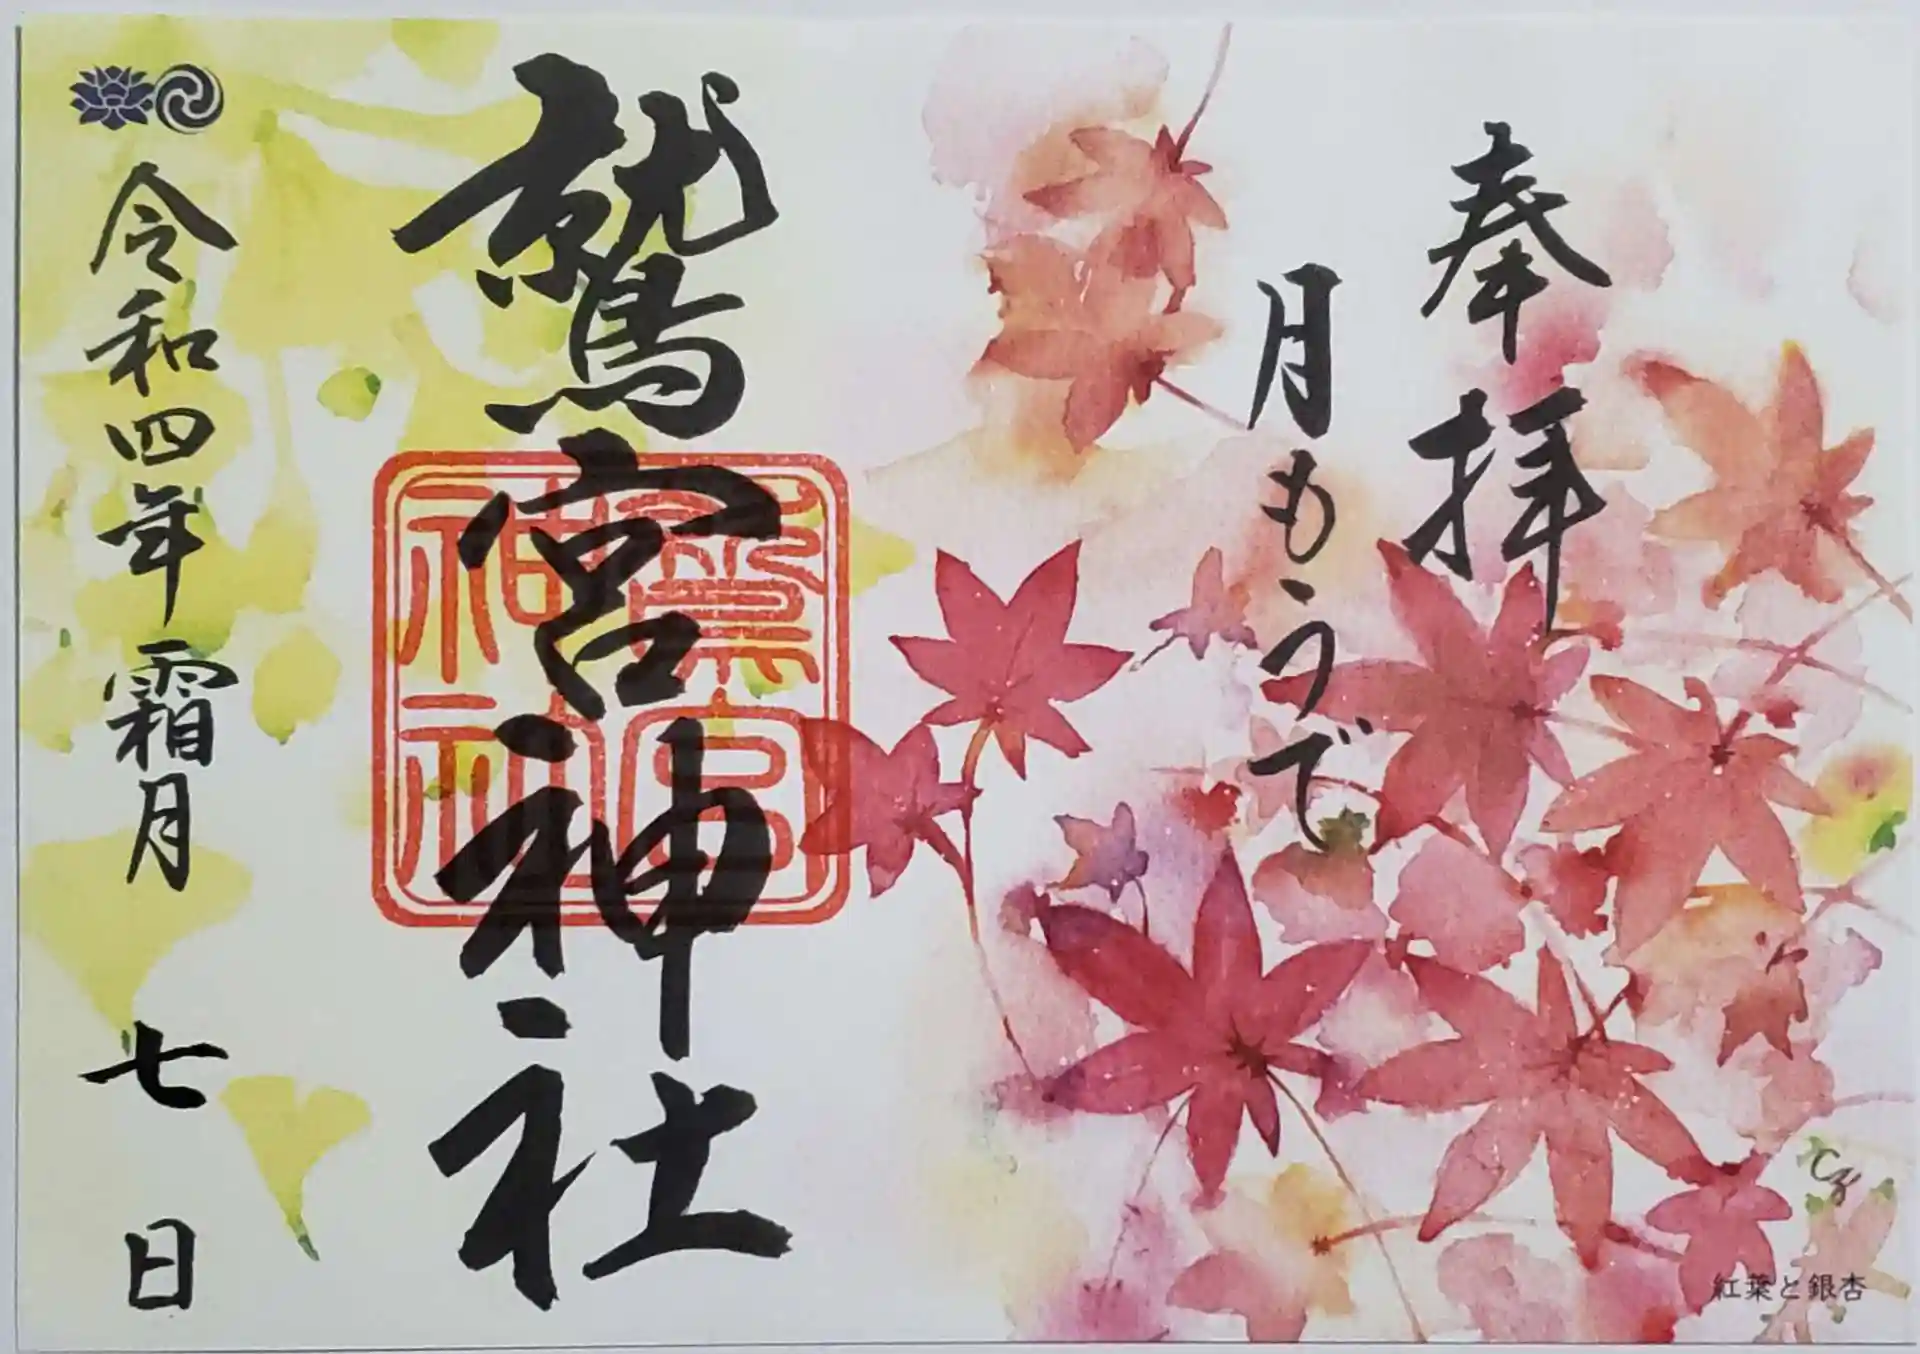 奉拝
月もうで
鷲宮神社
鷲宮神社
令和四年霜月七日
紅葉と銀杏